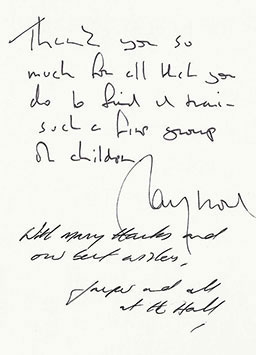 Thank you so
much for all that you
do to find & train
such a fine group
of children
With many thanks and
our best wishes,
and all
at the Hall